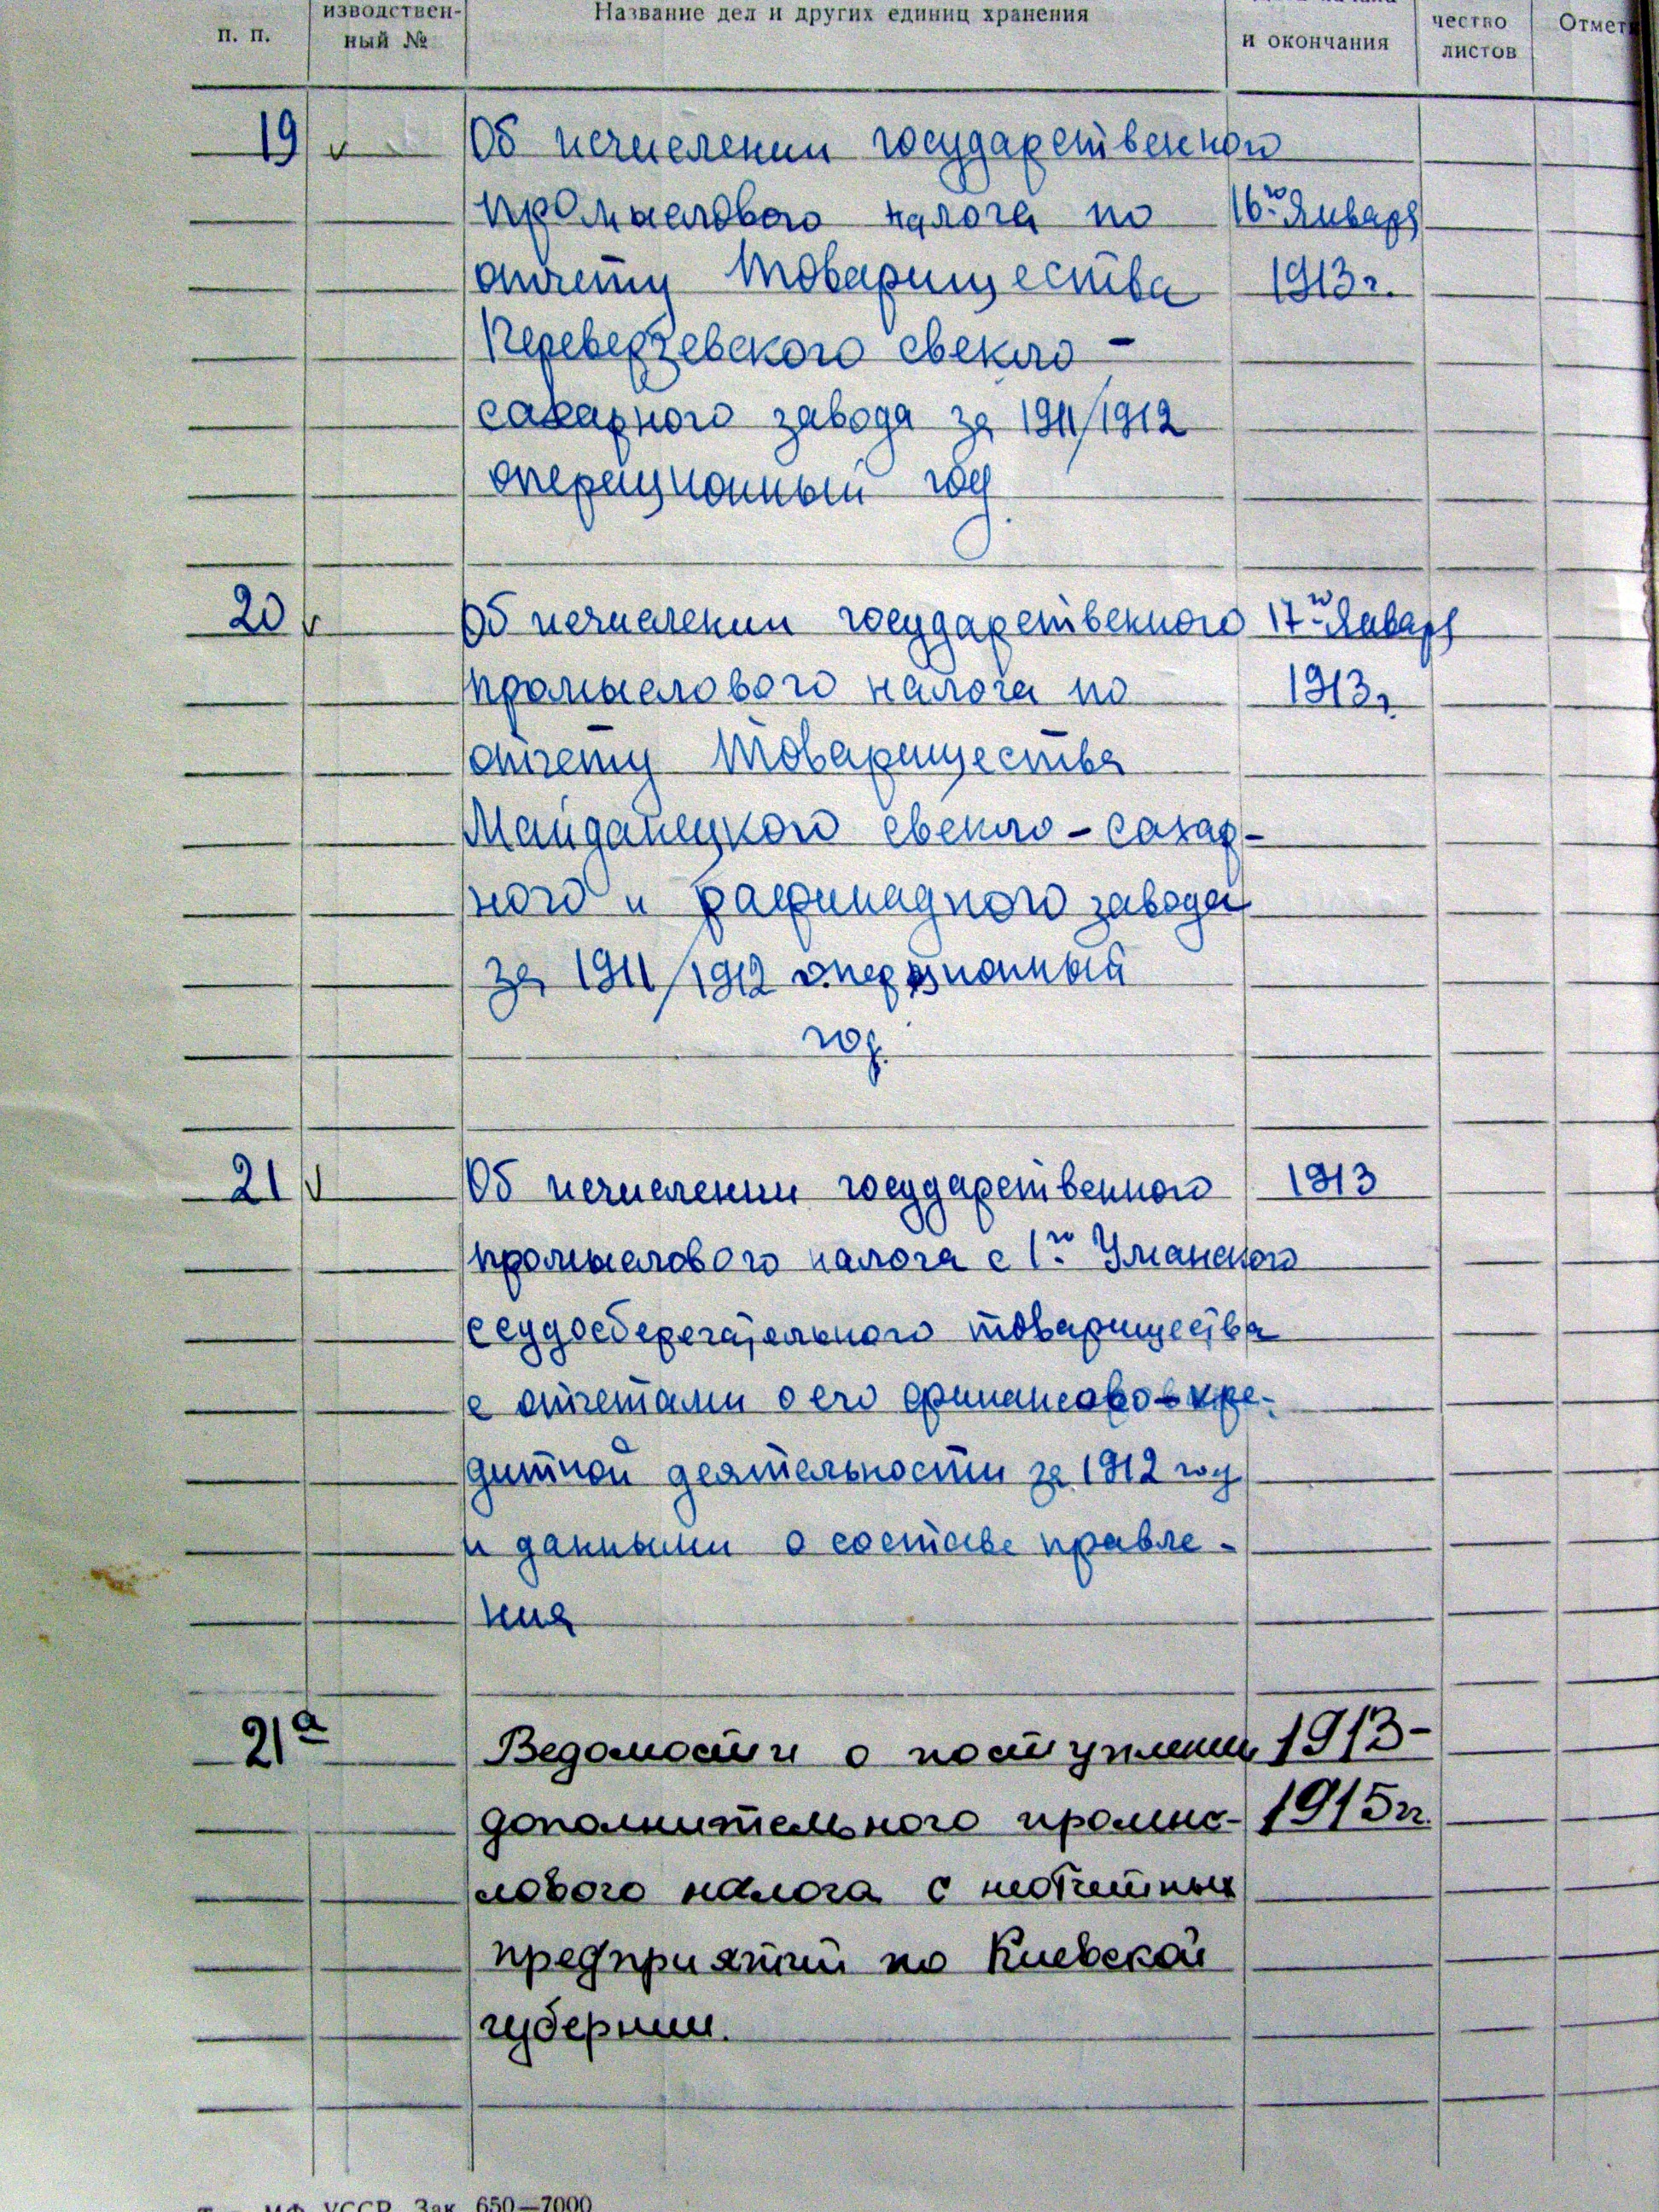 п. п.
изводствен-
ный №
Название дел и других единиц хранения
и окончания
чество
листов
Отмет
19 v Об исчислении государственного
промыслового налога по 16го Января
отчету Товарищества 1913г.
Переверзевского свекло-
сахарного завода за 1911/1912
операционный год
20 v Об исчислении государственного 17го Января
промыслового налога по 1913г.
отчету Товарищества
Майданецкого свекло-сахар-
ного и рафинадного завода
за 1911/1912 операционный
год.
21 v Об исчислении государственного 1913
промыслового налога с 1го Уманского
ссудосберегательного товарищества
с отчетами о его финансово-кре-
дитной деятельности за 1912 год
и данными о составе правле-
ния
21а Ведомости о поступлении 1913-
дополнительного промыс- 1915гг.
лового налога с неотчетных
предприятий по Киевской
губернии.
МФ УССР Зак. 650—7000